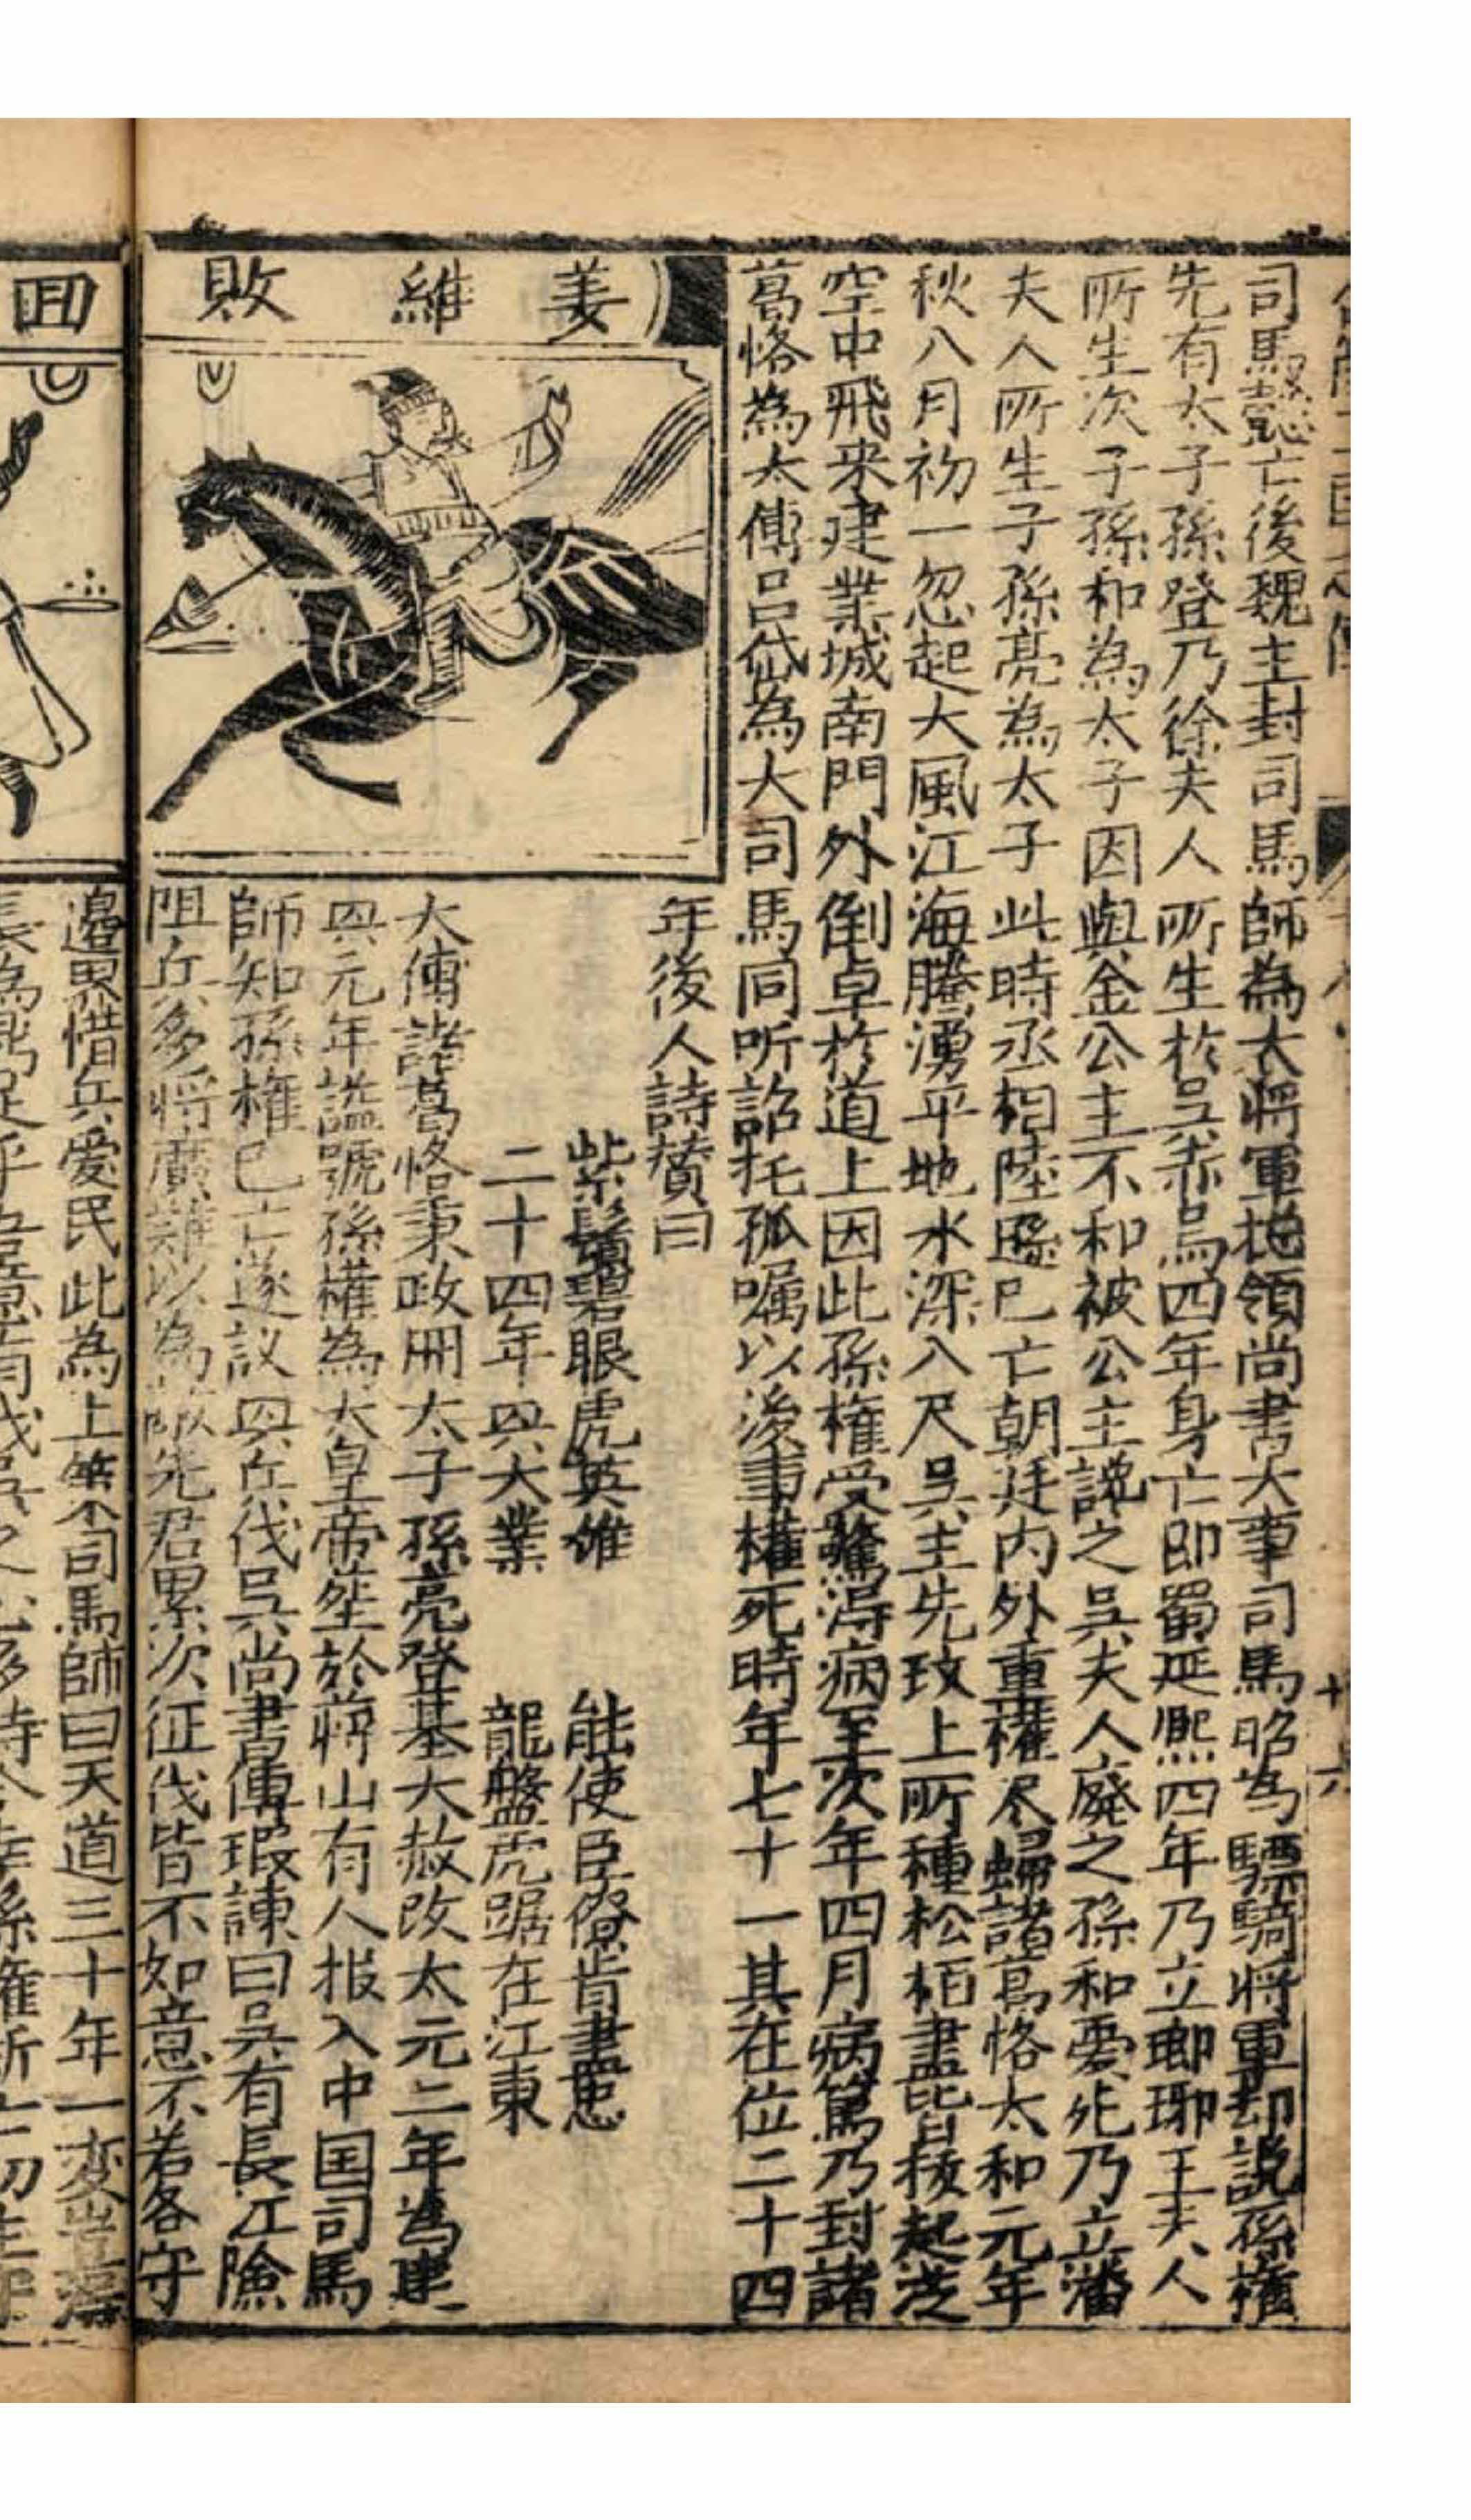 司馬懿亡後魏主封司馬師為大將軍揔領尚書大事司馬昭為驃騎將軍却説孫權
先有太子孫登乃徐夫人所生於吳赤烏四年身亡即蜀延熙四年乃立瑯琊王夫人
所生次子孫和為太子因與金公主不和被公主譛之吳夫人廢之孫和憂死乃立潘
夫人所生子孫亮為太子此時丞相陸遜已亡朝廷内外重權尽歸諸葛恪太和元年
秋八月初一忽起大風江海騰湧平地水深八尺吳主先坟上所種松栢盡皆拔起茫
空中飛來建業城南門外倒卓於道上因此孫權受驚得病至次年四月病篤乃封諸
葛恪為太傅吕岱為大司馬同听詔托孤嘱以後事權死時年七十一其在位二十四
年後人詩贊曰
紫髯碧眼虎英雄 能使臣僚肯盡忠
二十四年興大業 龍盤虎踞在江東
大傅諸葛恪秉政册太子孫亮登基大赦改太元二年為建
興元年謚號孫權為大皇帝塟於蔣山有人报入中国司馬
師知孫權已亡遂議興兵伐吳尚書傅瑕諫曰吳有長江險
阻兵多將廣難以為 先君累次征伐皆不如意不若各守
姜維敗
邉界惜兵愛民此為上策司馬師曰天道三十年一変豈
回